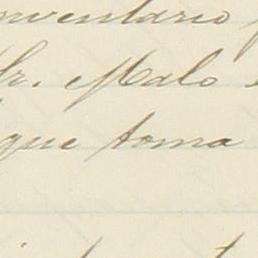 inventario
Sr. Malo
que toma